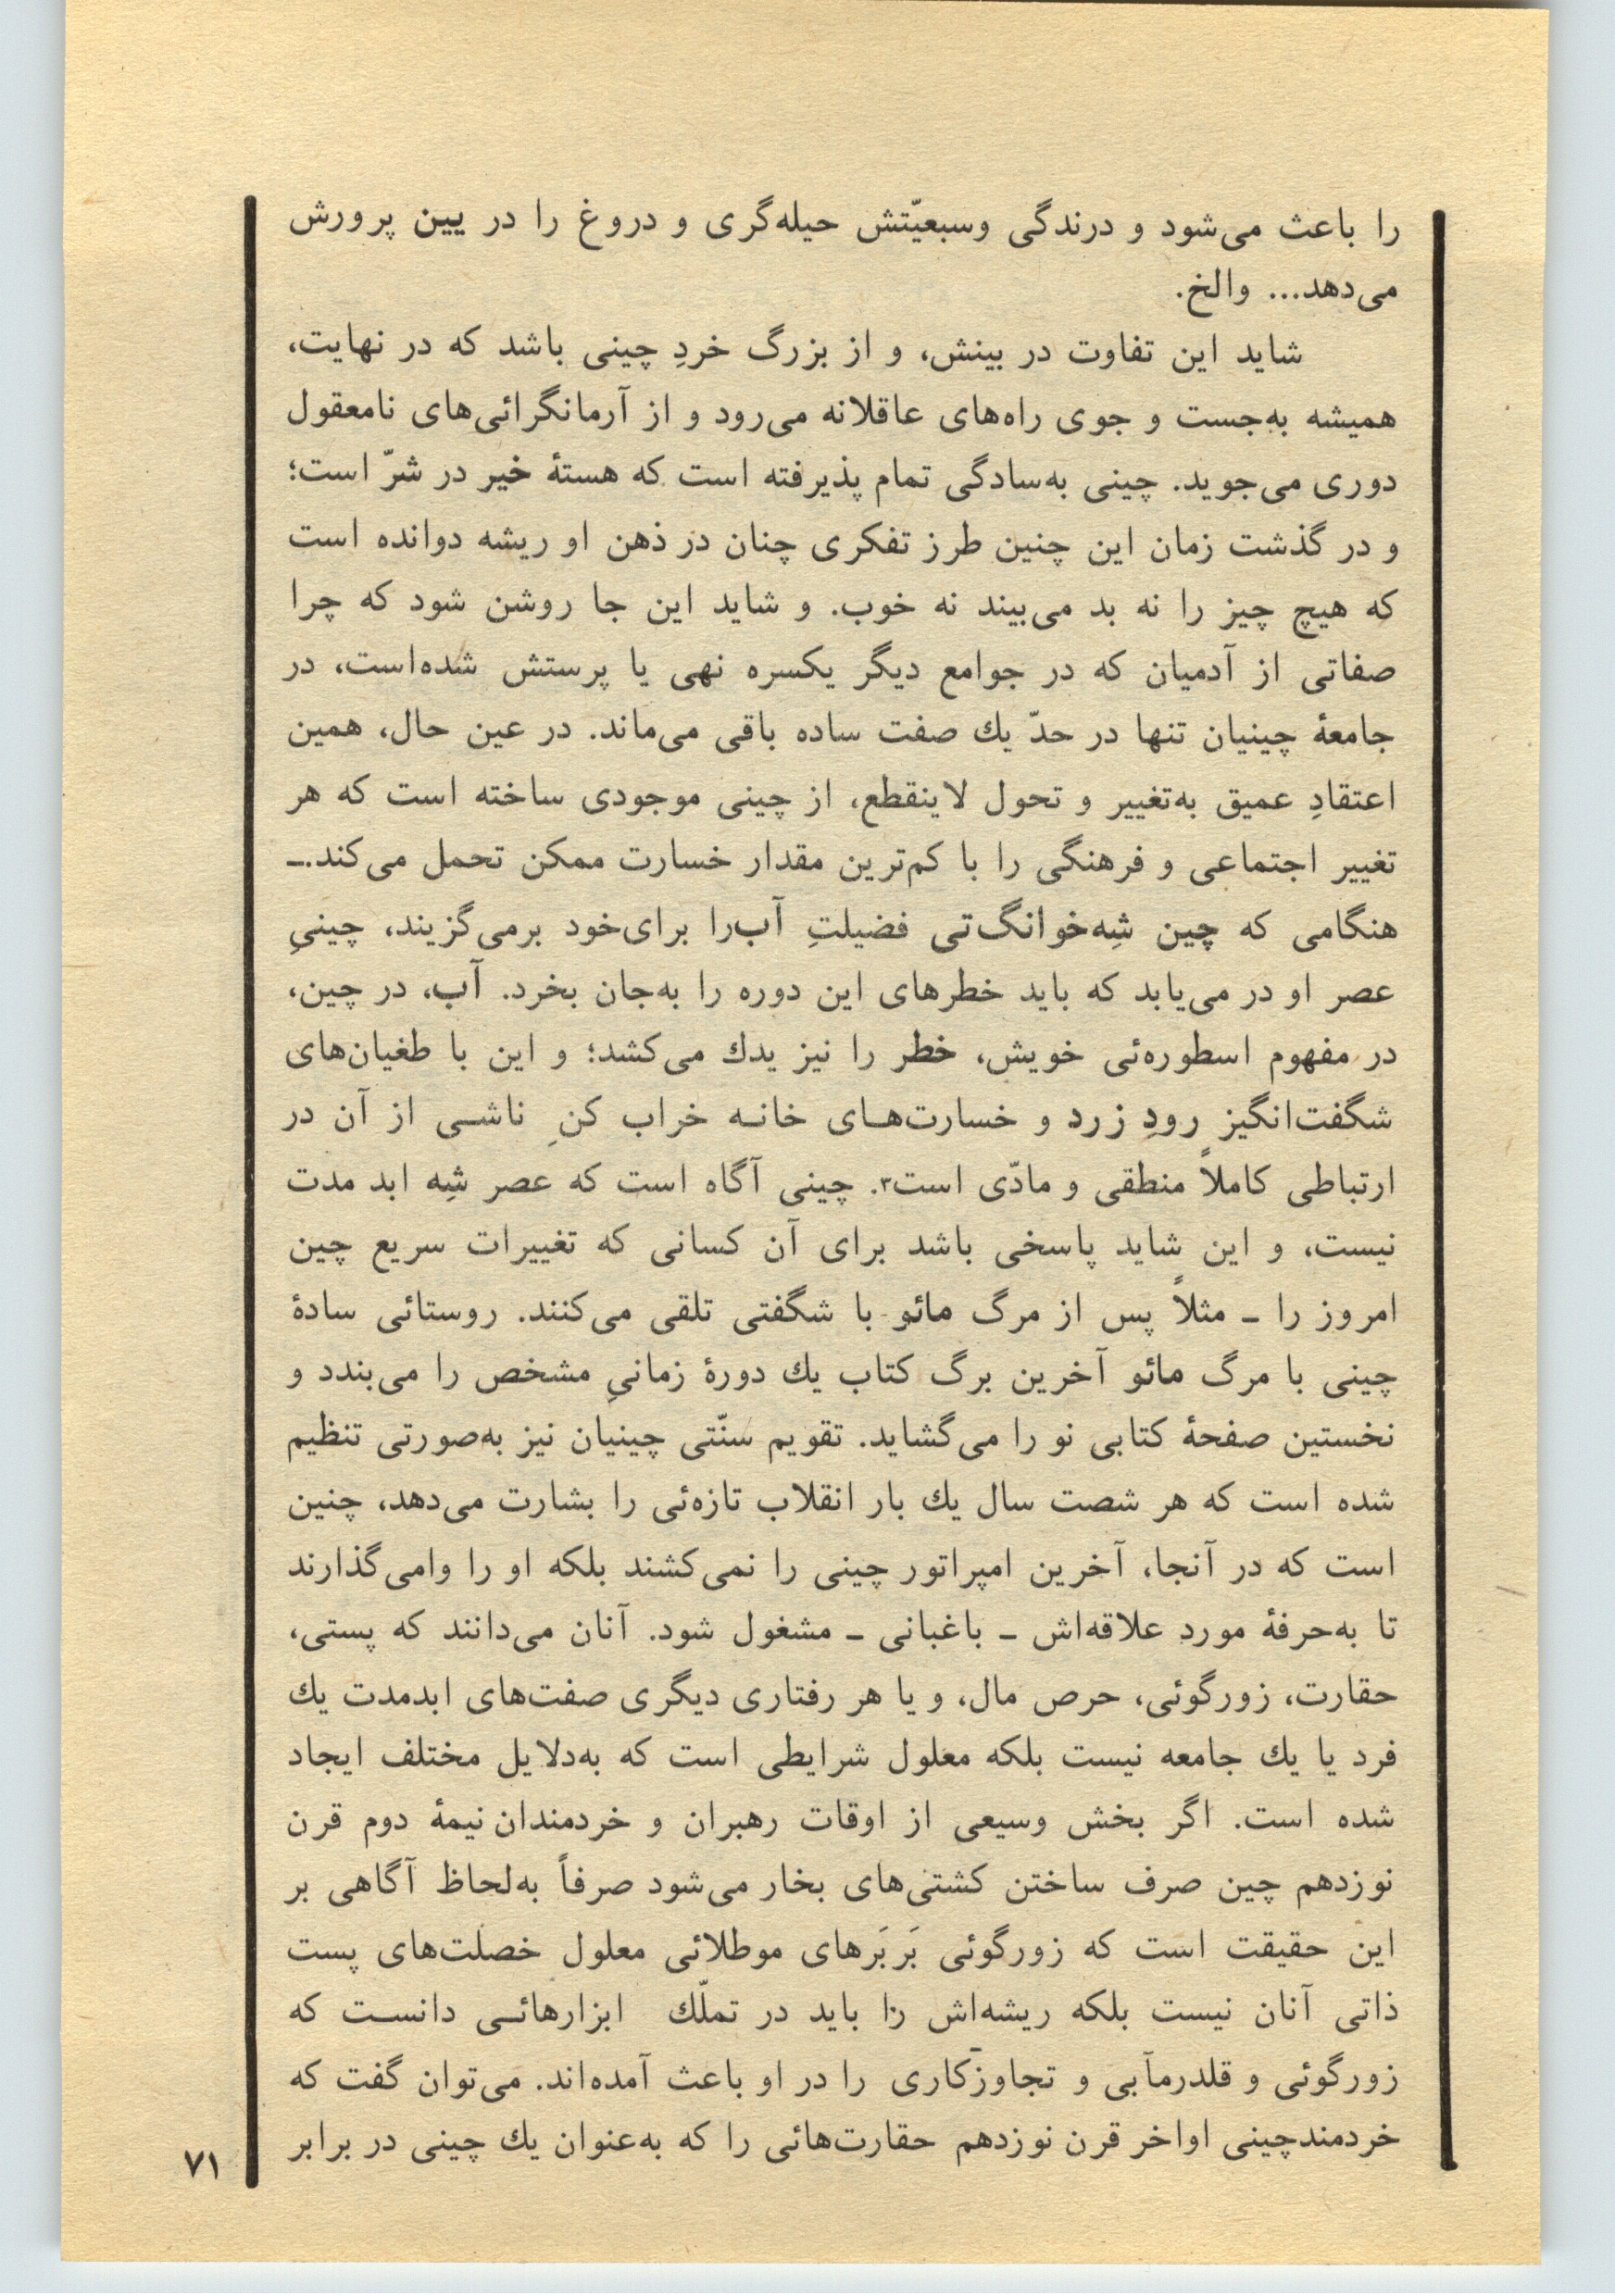 را باعث می‌شود و درندگی وسبعیّتش حیله‌گری و دروغ را در یین پرورش
می‌دهد... والخ.
شاید این تفاوت در بینش، و از بزرگ خردِ چینی باشد که در نهایت،
همیشه به‌جست و جوی راه‌های عاقلانه می‌رود و از آرمانگرائی‌های نامعقول
دوری می‌جوید. چینی به‌سادگی تمام پذیرفته است که هستهٔ خیر در شرّ است؛
و در گذشت زمان این چنین طرز تفکری چنان در ذهن او ریشه دوانده است
که هیچ چیز را نه بد می‌بیند نه خوب. و شاید این جا روشن شود که چرا
صفاتی از آدمیان که در جوامع دیگر یکسره نهی یا پرستش شده‌است، در
جامعهٔ چینیان تنها در حدّ یك صفت ساده باقی می‌ماند. در عین حال، همین
اعتقادِ عمیق به‌تغییر و تحول لاینقطع، از چینی موجودی ساخته است که هر
تغییر اجتماعی و فرهنگی را با کم‌ترین مقدار خسارت ممکن تحمل می‌کند.ـ
هنگامی که چین شِه‌خوانگ‌تی فضیلتِ آب‌را برای‌خود برمی‌گزیند، چینیِ
عصر او در می‌یابد که باید خطرهای این دوره را به‌جان بخرد. آب، در چین،
در مفهوم اسطوره‌ئی خویش، خطر را نیز یدك می‌کشد؛ و این با طغیان‌های
شگفت‌انگیز رودِ زرد و خسارت‌هـای خانـه خراب کنِ ناشـی از آن در
ارتباطی کاملاً منطقی و مادّی است۳. چینی آگاه است که عصر شِه ابد مدت
نیست، و این شاید پاسخی باشد برای آن کسانی که تغییرات سریع چین
امروز را ـ مثلاً پس از مرگ مائو با شگفتی تلقی می‌کنند. روستائی سادهٔ
چینی با مرگ مائو آخرین برگ کتاب یك دورهٔ زمانیِ مشخص را می‌بندد و
نخستین صفحهٔ کتابی نو را می‌گشاید. تقویم سنّتی چینیان نیز به‌صورتی تنظیم
شده است که هر شصت سال یك بار انقلاب تازه‌ئی را بشارت می‌دهد، چنین
است که در آنجا، آخرین امپراتور چینی را نمی‌کشند بلکه او را وامی‌گذارند
تا به‌حرفهٔ مورد علاقه‌اش ـ باغبانی ـ مشغول شود. آنان می‌دانند که پستی،
حقارت، زورگوئی، حرص مال، و یا هر رفتاری دیگری صفت‌های ابدمدت یك
فرد یا یك جامعه نیست بلکه معلول شرایطی است که به‌دلایل مختلف ایجاد
شده است. اگر بخش وسیعی از اوقات رهبران و خردمندان نیمهٔ دوم قرن
نوزدهم چین صرف ساختن کشتی‌های بخار می‌شود صرفاً به‌لحاظ آگاهی بر
این حقیقت است که زورگوئی بَربَرهای موطلائی معلول خصلت‌های پست
ذاتی آنان نیست بلکه ریشه‌اش را باید در تملّك ابزارهائـی دانسـت که
زورگوئی و قلدرمآبی و تجاوزکاری را در او باعث آمده‌اند. می‌توان گفت که
خردمندچینی اواخر قرن نوزدهم حقارت‌هائی را که به‌عنوان یك چینی در برابر
۷۱